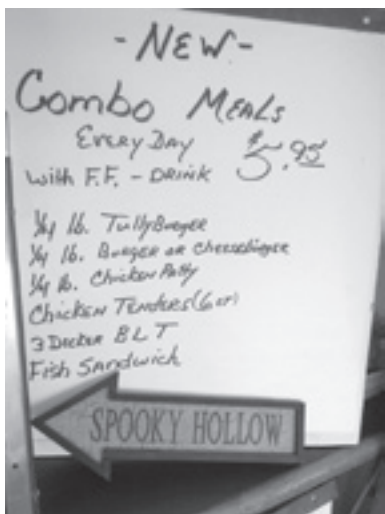 - NEW -
Combo MEALS
EVERY DAY $5.95
with F.F. - DRINK
1/4 lb. TullyBurger
1/4 lb. Burger or Cheeseburger
1/4 lb. Chicken Patty
Chicken Tenders (6 or)
3 Decker BLT
Fish Sandwich
SPOOKY HOLLOW